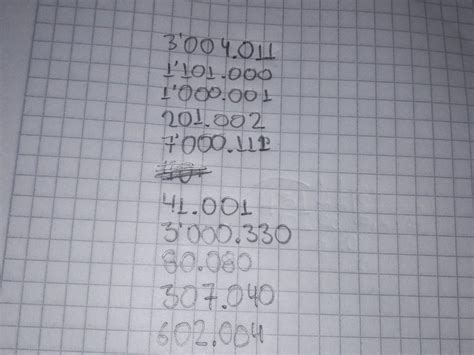 3'004.011
1'101.000
1'000.001
201.002
7'000.111
41.001
3'000.330
80.080
307.040
602.004